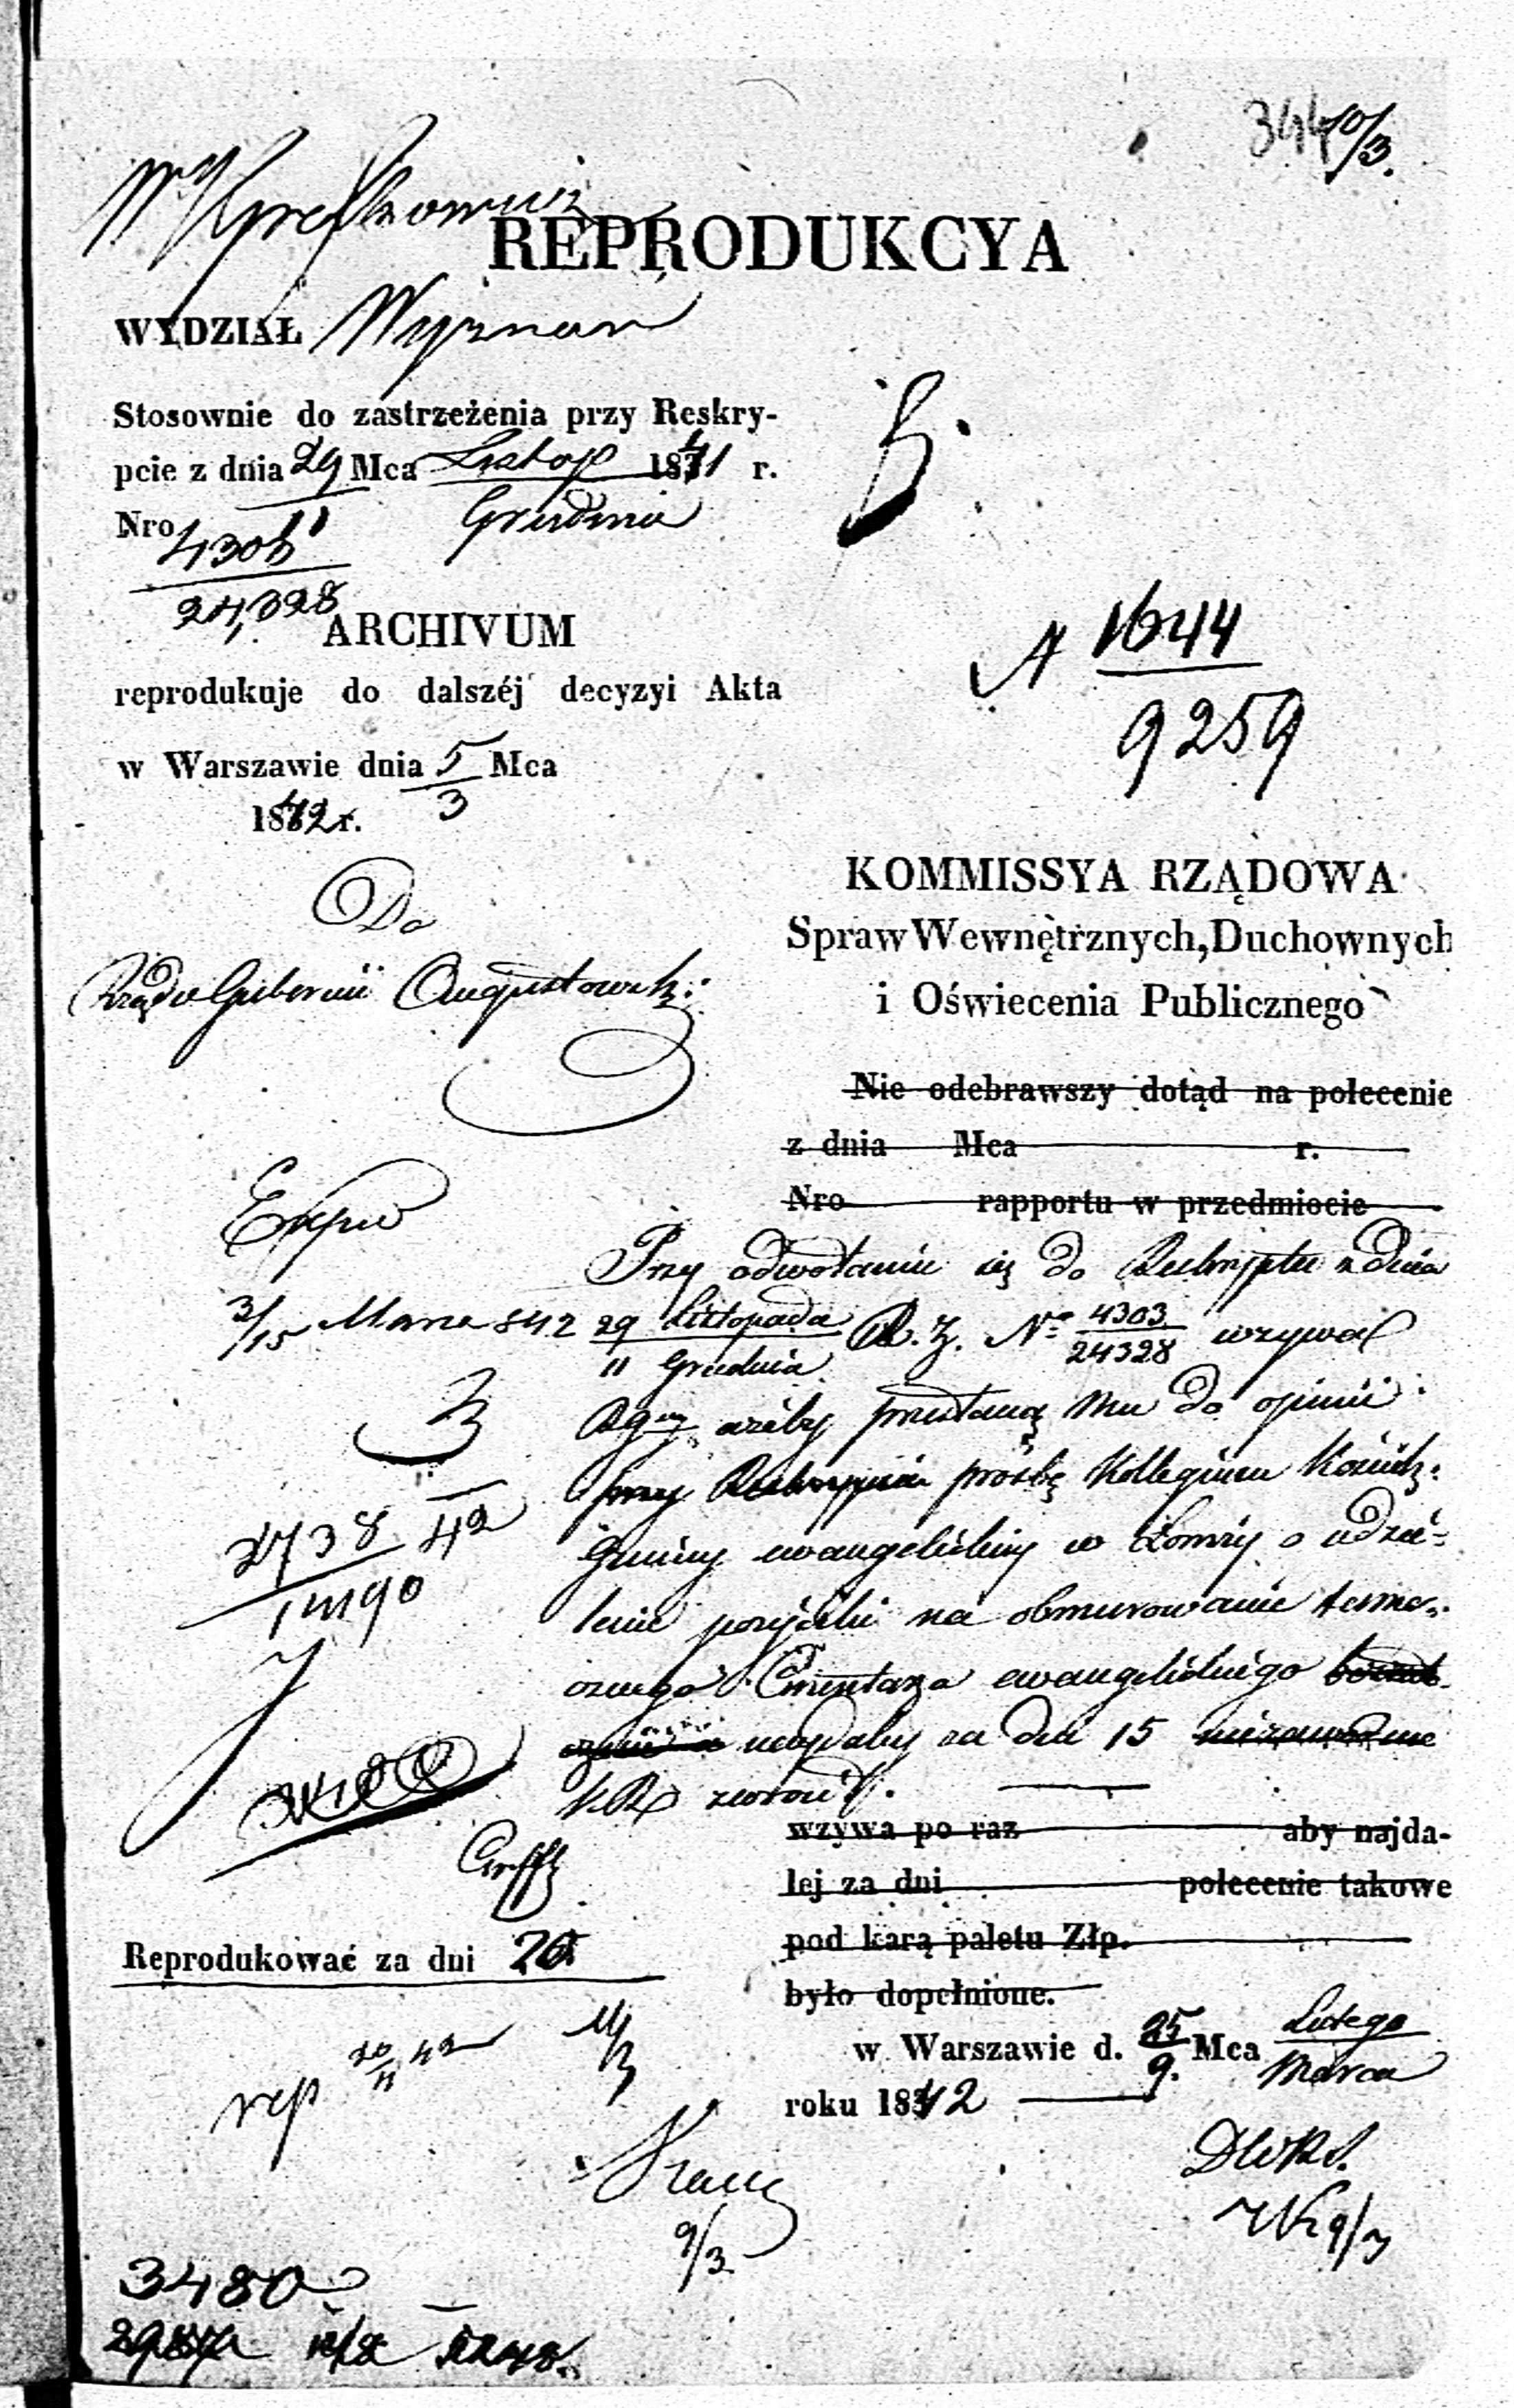 344 10/3.
REPRODUKCYA
WYDZIAŁ Wyznań
Stosownie do zastrzeżenia przy Reskry-
pcie z dnia 29 Mca Listop 1841 r.
11 Grudnia
Nro 4303
24,328
ARCHIVUM
reprodukuje do dalszéj decyzyi Akta
w Warszawie dnia 5/3 Mca
1842 r.
Do
Rządu Gubernii Augustowsk:
Exped
3/15 Marca 842
2738 42
14190
Reprodukować za dni 20
rep 20/11 42
11/3
9/3
3480
B.
N 1644
9259
KOMMISSYA RZĄDOWA
Spraw Wewnętrznych, Duchownych
i Oświecenia Publicznego
Nie odebrawszy dotąd na polecenie
z dnia Mca r.
Nro rapportu w przedmiocie
Przy odwołaniu się do Reskryptu z dnia
29 Listopada R. z. No 4303 wzywa
11 Grudnia 24328
Rgu ażeby przesłaną mu do opinii
przy Reskrypcie prośbę Kollegium Kościel:
Gminy ewangelickiej w Łomży o udzie-
lenie pożyczki na obmurowanie tamec-
znego Cmentarza ewangelickiego
najdalej za dni 15 niezawodnie
K.R. zwrócił.
wzywa po raz aby najda-
lej za dni polecenie takowe
pod karą paletu Złp.
było dopełnione.
w Warszawie d. 25 Mca Lutego
9. Marca
roku 1842
9/3